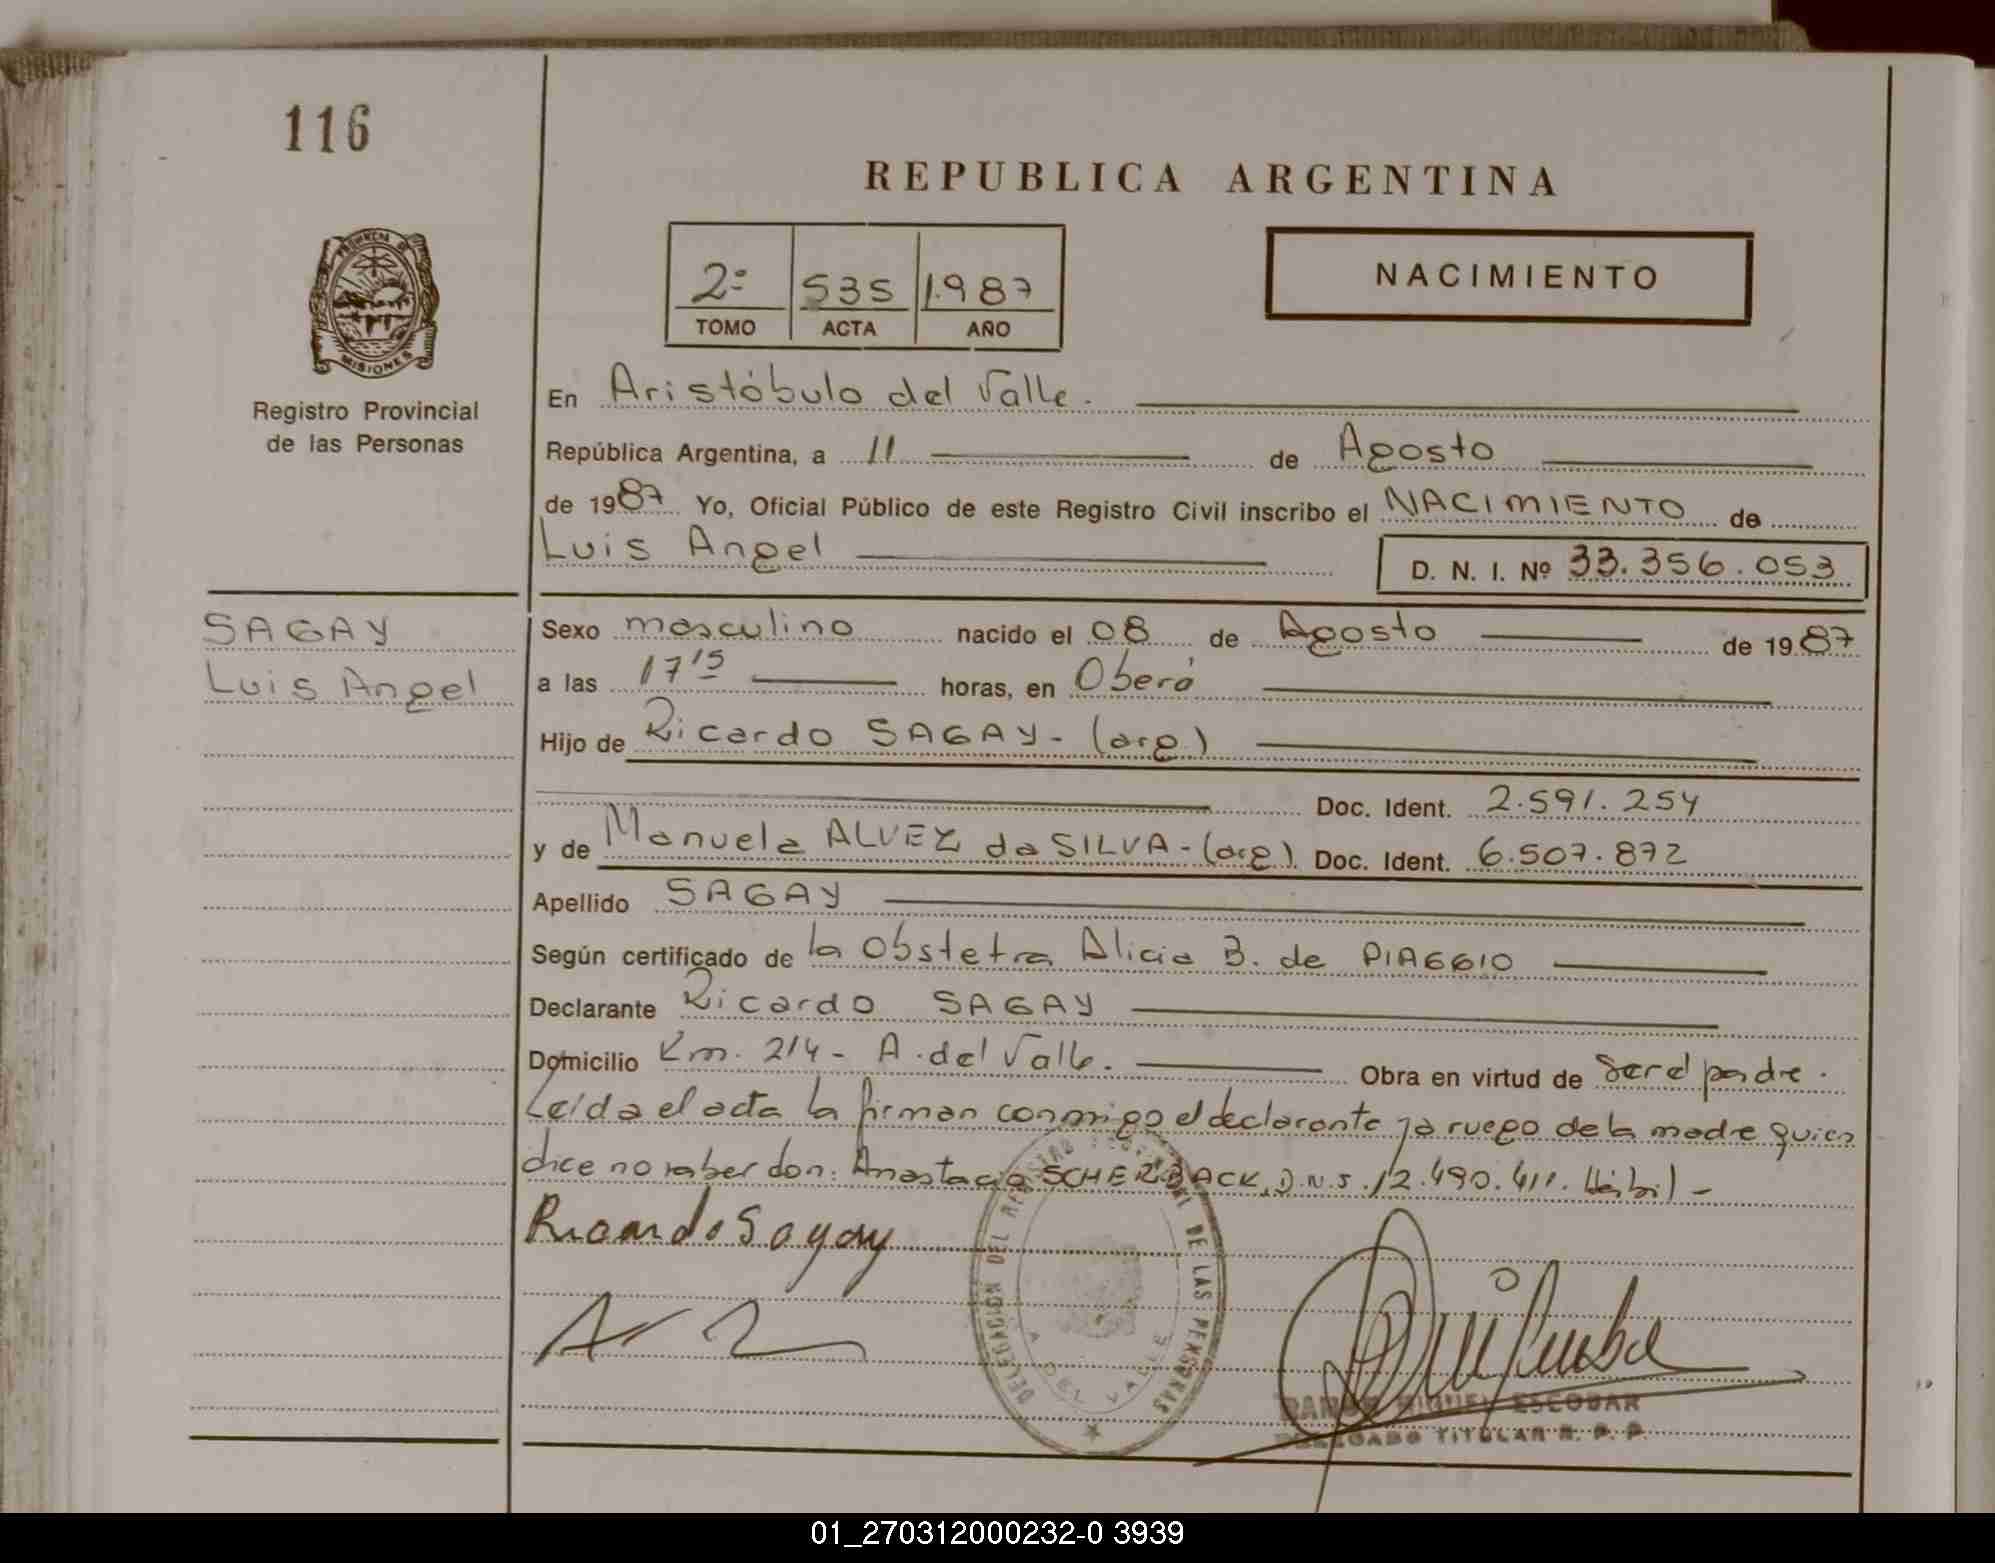 116
REPUBLICA ARGENTINA
PROVINCIA DE
MISIONES
Registro Provincial
de las Personas
2º 535 1.987
TOMO ACTA AÑO
NACIMIENTO
En Aristóbulo del Valle.
República Argentina, a 11 de Agosto
de 1987 Yo, Oficial Público de este Registro Civil inscribo el NACIMIENTO de
Luis Angel D. N. I. Nº 33.356.053
SAGAY
Luis Angel
Sexo masculino nacido el 08 de Agosto de 1987
a las 17 15 horas, en Oberá
Hijo de Ricardo SAGAY - (arg.)
Doc. Ident. 2.591.254
y de Manuela ALVEZ da SILVA - (arg). Doc. Ident. 6.507.872
Apellido SAGAY
Según certificado de la Obstetra Alicia B. de PIAGGIO
Declarante Ricardo SAGAY
Domicilio Km. 214 - A. del Valle. Obra en virtud de ser el padre.
Leída el acta la firman conmigo el declarante y a ruego de la madre quien
dice no saber don: Anastacio SCHERBACK, D.N.I. 12.490.411. Hábil -
Ricardo Sagay
DELEGACION DEL REGISTRO PROVINCIAL DE LAS PERSONAS
A. DEL VALLE
RAMON MIGUEL ESCOBAR
DELEGADO TITULAR R. P. P.
01_270312000232-0 3939